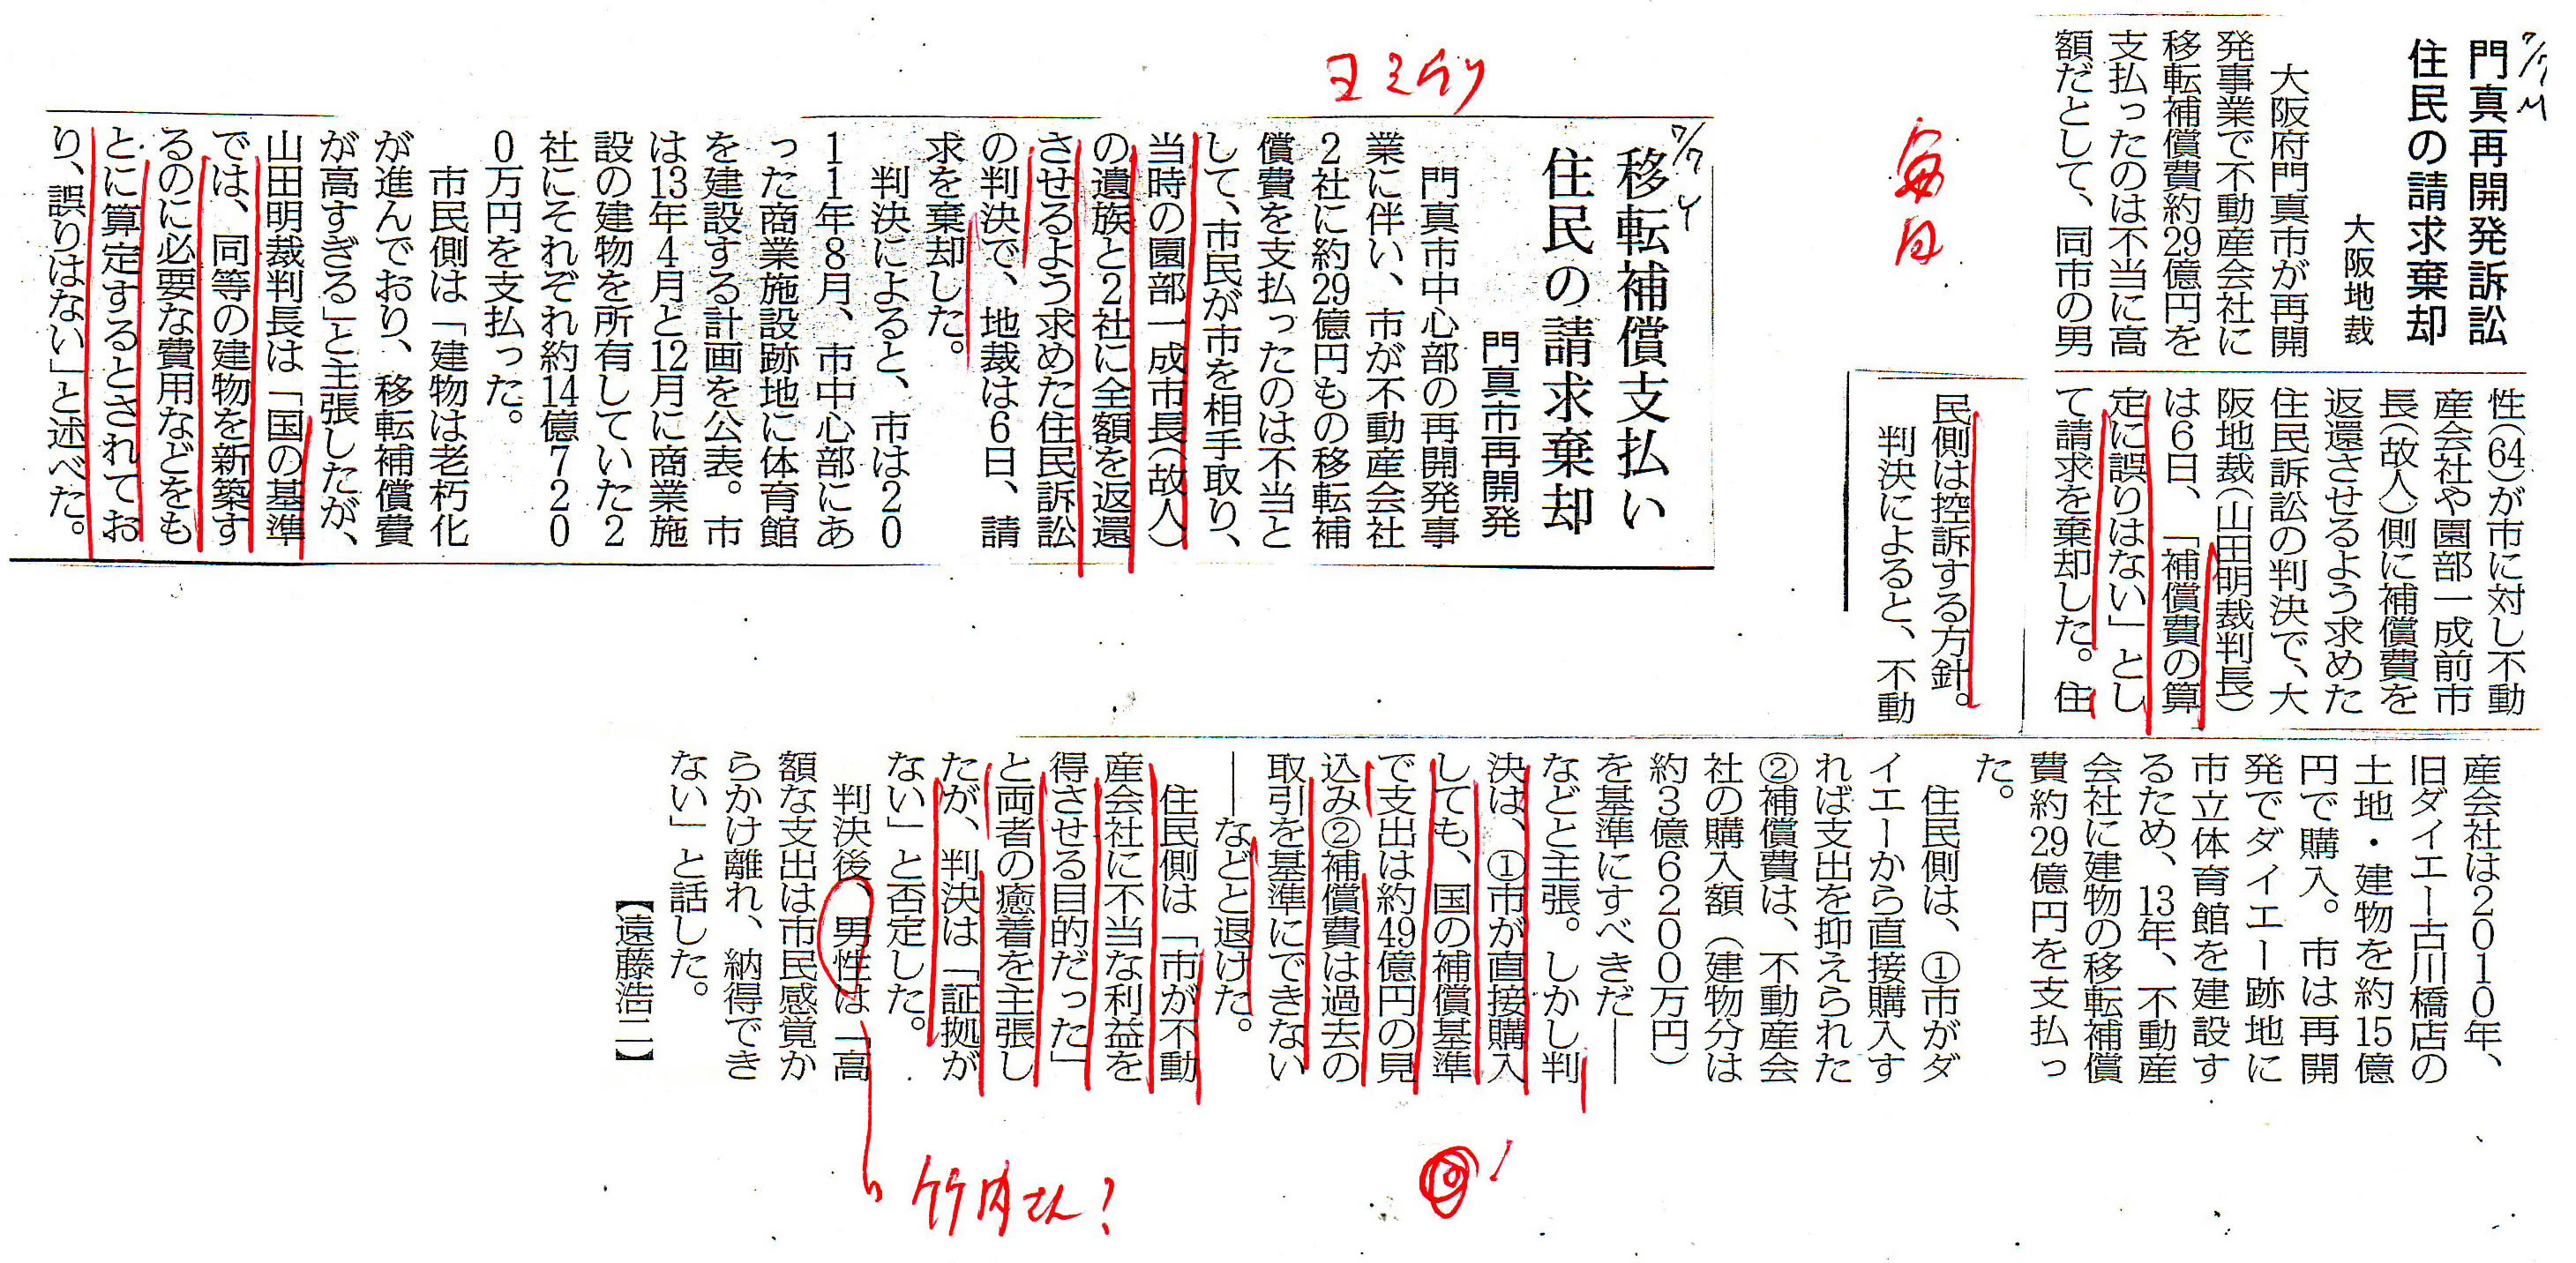 7/7 M
門真再開発訴訟
住民の請求棄却
大阪地裁
大阪府門真市が再開
発事業で不動産会社に
移転補償費約29億円を
支払ったのは不当に高
額だとして、同市の男
性(64)が市に対し不動
産会社や園部一成前市
長(故人)側に補償費を
返還させるよう求めた
住民訴訟の判決で、大
阪地裁(山田明裁判長)
は6日、「補償費の算
定に誤りはない」とし
て請求を棄却した。住
民側は控訴する方針。
判決によると、不動
産会社は2010年、
旧ダイエー古川橋店の
土地・建物を約15億
円で購入。市は再開
発でダイエー跡地に
市立体育館を建設す
るため、13年、不動産
会社に建物の移転補償
費約29億円を支払っ
た。
住民側は、①市がダ
イエーから直接購入す
れば支出を抑えられた
②補償費は、不動産会
社の購入額(建物分は
約3億6200万円)
を基準にすべきだ――
などと主張。しかし判
決は、①市が直接購入
しても、国の補償基準
で支出は約49億円の見
込み②補償費は過去の
取引を基準にできない
――などと退けた。
住民側は「市が不動
産会社に不当な利益を
得させる目的だった」
と両者の癒着を主張し
たが、判決は「証拠が
ない」と否定した。
判決後、男性は「高
額な支出は市民感覚か
らかけ離れ、納得でき
ない」と話した。
【遠藤浩二】
毎日
竹内さん?
ヨミウリ
7/7 Y
移転補償支払い
住民の請求棄却
門真市再開発
門真市中心部の再開発事
業に伴い、市が不動産会社
2社に約29億円もの移転補
償費を支払ったのは不当と
して、市民が市を相手取り、
当時の園部一成市長(故人)
の遺族と2社に全額を返還
させるよう求めた住民訴訟
の判決で、地裁は6日、請
求を棄却した。
判決によると、市は20
11年8月、市中心部にあ
った商業施設跡地に体育館
を建設する計画を公表。市
は13年4月と12月に商業施
設の建物を所有していた2
社にそれぞれ約14億720
0万円を支払った。
市民側は「建物は老朽化
が進んでおり、移転補償費
が高すぎる」と主張したが、
山田明裁判長は「国の基準
では、同等の建物を新築す
るのに必要な費用などをも
とに算定するとされてお
り、誤りはない」と述べた。